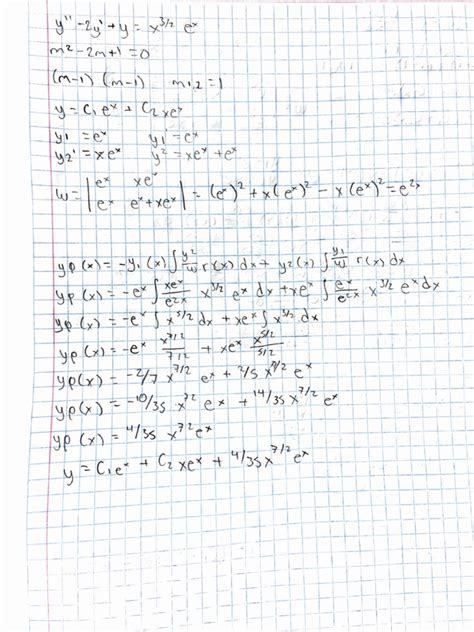 y'' - 2y' + y = x^3/2 e^x
m² - 2m + 1 = 0
(m-1) (m-1)   m1,2 = 1
y = C1 e^x + C2 xe^x
y1 = e^x   y1' = e^x
y2' = xe^x   y² = xe^x + e^x
W = | e^x   xe^x ; e^x   e^x + xe^x | = (e^x)² + x(e^x)² - x(e^x)² = e^2x
yp(x) = -y1(x) ∫ y2/W r(x) dx + y2(x) ∫ y1/W r(x) dx
yp(x) = -e^x ∫ xe^x/e^2x x^3/2 e^x dx + xe^x ∫ e^x/e^2x x^3/2 e^x dx
yp(x) = -e^x ∫ x^5/2 dx + xe^x ∫ x^3/2 dx
yp(x) = -e^x x^7/2 / 7/2 + xe^x x^5/2 / 5/2
yp(x) = -2/7 x^7/2 e^x + 2/5 x^7/2 e^x
yp(x) = -10/35 x^72 e^x + 14/35 x^7/2 e^x
yp(x) = 4/35 x^72 e^x
y = C1 e^x + C2 xe^x + 4/35 x^7/2 e^x